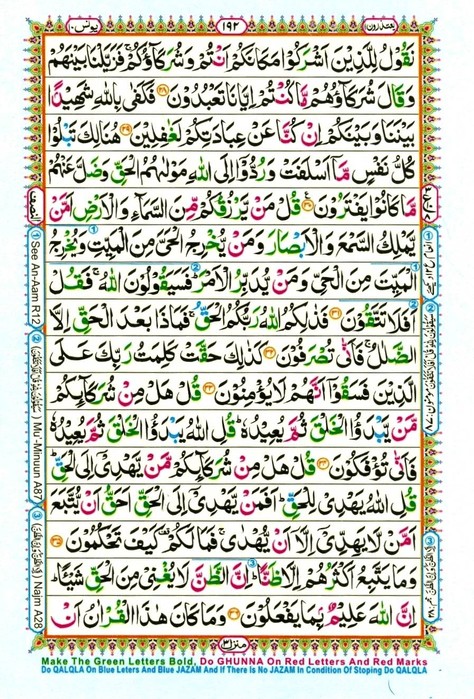 يعتذرون ١١
١٩٢
يونس ١٠
نَقُوۡلُ لِلَّذِيۡنَ اَشۡرَكُوۡا مَكَانَكُمۡ اَنۡتُمۡ وَشُرَكَآؤُكُمۡ‌ۚ فَزَيَّلۡنَا بَيۡنَهُمۡ‌
وَقَالَ شُرَكَآؤُهُمۡ مَّا كُنۡتُمۡ اِيَّانَا تَعۡبُدُوۡنَ‏ ﴿۲۸﴾ فَكَفٰى بِاللّٰهِ شَهِيۡدًاۢ
بَيۡنَنَا وَبَيۡنَكُمۡ اِنۡ كُنَّا عَنۡ عِبَادَتِكُمۡ لَغٰفِلِيۡنَ‏ ﴿۲۹﴾ هُنَالِكَ تَبۡلُوۡا
كُلُّ نَفۡسٍ مَّاۤ اَسۡلَفَتۡ‌ وَرُدُّوۡۤا اِلَى اللّٰهِ مَوۡلٰٮهُمُ الۡحَقِّ‌ وَضَلَّ عَنۡهُمۡ
مَّا كَانُوۡا يَفۡتَرُوۡنَ ﴿۳۰﴾ قُلۡ مَنۡ يَّرۡزُقُكُمۡ مِّنَ السَّمَآءِ وَالۡاَرۡضِ اَمَّنۡ
يَّمۡلِكُ السَّمۡعَ وَالۡاَبۡصَارَ وَمَنۡ يُّخۡرِجُ الۡحَىَّ مِنَ الۡمَيِّتِ وَيُخۡرِجُ
الۡمَيِّتَ مِنَ الۡحَىِّ وَمَنۡ يُّدَبِّرُ الۡاَمۡرَ‌ؕ فَسَيَـقُوۡلُوۡنَ اللّٰهُ‌ۚ فَقُلۡ
اَفَلَا تَتَّقُوۡنَ‏ ﴿۳۱﴾ فَذٰلِكُمُ اللّٰهُ رَبُّكُمُ الۡحَـقُّ ‌ۚ فَمَاذَا بَعۡدَ الۡحَـقِّ اِلَّا
الضَّلٰلُ‌ ۚ فَاَنّٰى تُصۡرَفُوۡنَ‏ ﴿۳۲﴾ كَذٰلِكَ حَقَّتۡ كَلِمَتُ رَبِّكَ عَلَى
الَّذِيۡنَ فَسَقُوۡۤا اَنَّهُمۡ لَا يُؤۡمِنُوۡنَ‏ ﴿۳۳﴾ قُلۡ هَلۡ مِنۡ شُرَكَآٮِٕكُمۡ
مَّنۡ يَّبۡدَؤُا الۡخَـلۡقَ ثُمَّ يُعِيۡدُهٗ‌ ؕ قُلِ اللّٰهُ يَـبۡدَؤُا الۡخَـلۡقَ ثُمَّ يُعِيۡدُهٗ‌
فَاَنّٰى تُؤۡفَكُوۡنَ ﴿۳۴﴾ قُلۡ هَلۡ مِنۡ شُرَكَآٮِٕكُمۡ مَّنۡ يَّهۡدِىۡۤ اِلَى الۡحَـقِّ‌ؕ
قُلِ اللّٰهُ يَهۡدِىۡ لِلۡحَقِّ‌ؕ اَفَمَنۡ يَّهۡدِىۡۤ اِلَى الۡحَقِّ اَحَقُّ اَنۡ يُّتَّبَعَ
اَمَّنۡ لَّا يَهِدِّىۡۤ اِلَّاۤ اَنۡ يُّهۡدٰى‌ۚ فَمَا لَكُمۡ كَيۡفَ تَحۡكُمُوۡنَ‏ ﴿۳۵﴾
وَمَا يَتَّبِعُ اَكۡثَرُهُمۡ اِلَّا ظَنًّا‌ؕ اِنَّ الظَّنَّ لَا يُغۡنِىۡ مِنَ الۡحَـقِّ شَيۡـًٔا‌ؕ
اِنَّ اللّٰهَ عَلِيۡمٌۢ بِمَا يَفۡعَلُوۡنَ‏ ﴿۳۶﴾ وَمَا كَانَ هٰذَا الۡقُرۡاٰنُ اَنۡ
منزل ٣
النصف
1 See An-Aam R12
2 Mu'-Minuun A87
3 Najm A28
Make The Green Letters Bold, Do GHUNNA On Red Letters And Red Marks
Do QALQLA On Blue Leters And Blue JAZAM And If There Is No JAZAM In Condition Of Stoping Do QALQLA